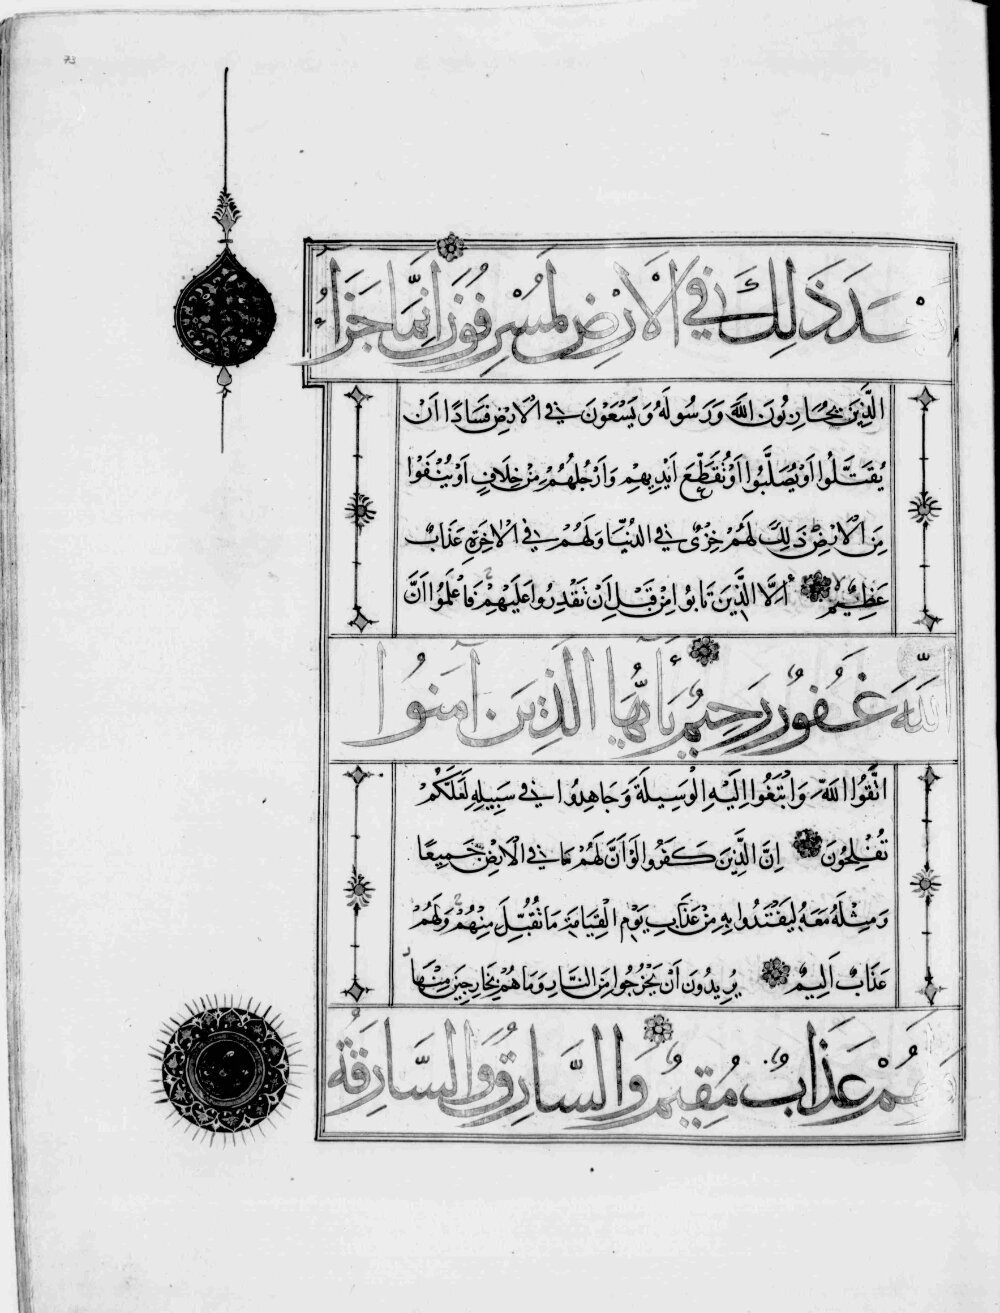 73
بَعْدَ ذَلِكَ فِي الْأَرْضِ لَمُسْرِفُونَ إِنَّمَا جَزَاءُ
الَّذِينَ يُحَارِبُونَ اللَّهَ وَرَسُولَهُ وَيَسْعَوْنَ فِي الْأَرْضِ فَسَادًا أَنْ
يُقَتَّلُوا أَوْ يُصَلَّبُوا أَوْ تُقَطَّعَ أَيْدِيهِمْ وَأَرْجُلُهُمْ مِنْ خِلَافٍ أَوْ يُنْفَوْا
مِنَ الْأَرْضِ ذَلِكَ لَهُمْ خِزْيٌ فِي الدُّنْيَا وَلَهُمْ فِي الْآخِرَةِ عَذَابٌ
عَظِيمٌ إِلَّا الَّذِينَ تَابُوا مِنْ قَبْلِ أَنْ تَقْدِرُوا عَلَيْهِمْ فَاعْلَمُوا أَنَّ
اللَّهَ غَفُورٌ رَحِيمٌ يَا أَيُّهَا الَّذِينَ آمَنُوا
اتَّقُوا اللَّهَ وَابْتَغُوا إِلَيْهِ الْوَسِيلَةَ وَجَاهِدُوا فِي سَبِيلِهِ لَعَلَّكُمْ
تُفْلِحُونَ إِنَّ الَّذِينَ كَفَرُوا لَوْ أَنَّ لَهُمْ مَا فِي الْأَرْضِ جَمِيعًا
وَمِثْلَهُ مَعَهُ لِيَفْتَدُوا بِهِ مِنْ عَذَابِ يَوْمِ الْقِيَامَةِ مَا تُقُبِّلَ مِنْهُمْ وَلَهُمْ
عَذَابٌ أَلِيمٌ يُرِيدُونَ أَنْ يَخْرُجُوا مِنَ النَّارِ وَمَا هُمْ بِخَارِجِينَ مِنْهَا
وَلَهُمْ عَذَابٌ مُقِيمٌ وَالسَّارِقُ وَالسَّارِقَةُ